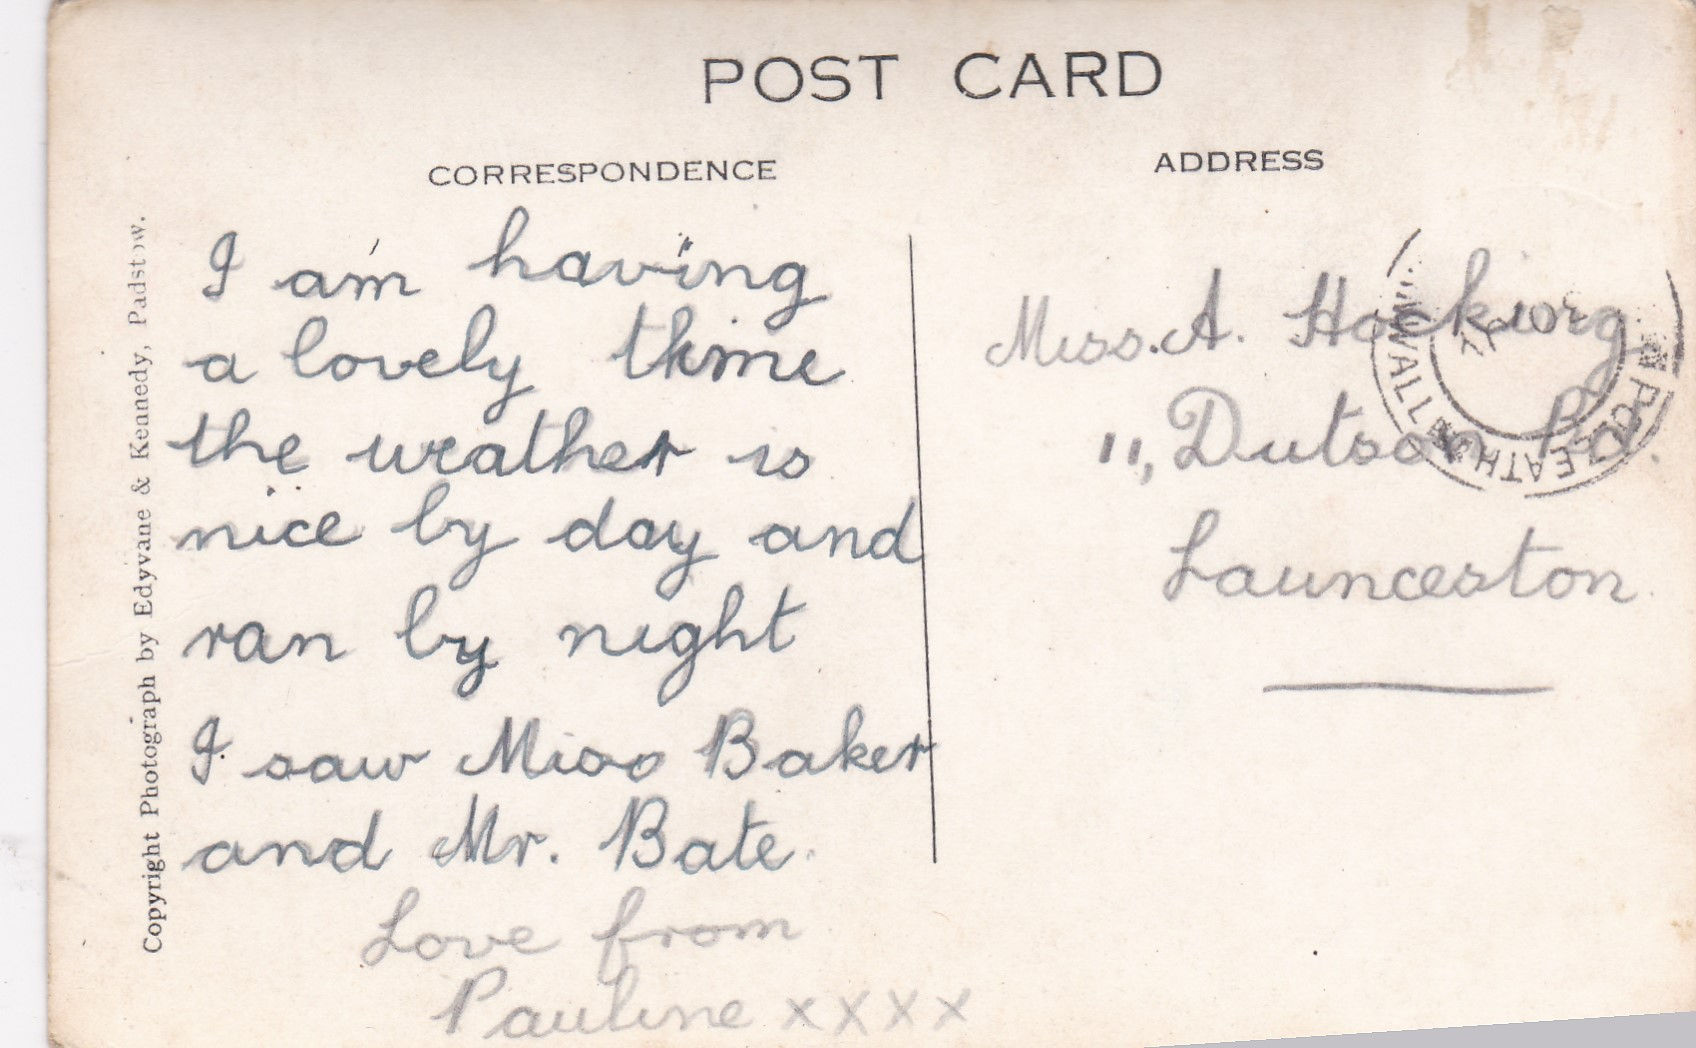 POST CARD
CORRESPONDENCE
ADDRESS
I am having
a lovely time
the weather is
nice by day and
ran by night
I saw Miss Baker
and Mr. Bate.
Love from
Pauline xxxx
Miss. A. Hocking
11, Dutson Rd.
Launceston
Copyright Photograph by Edyvane & Kennedy, Padstow.